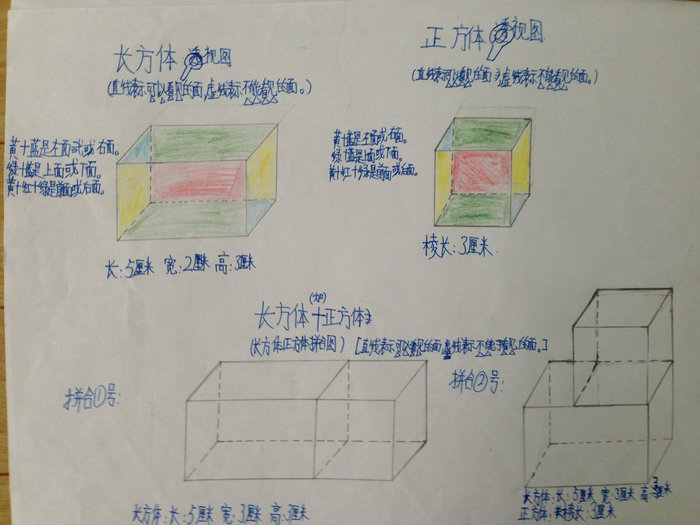 长方体 透视图
(直线表示可以看见的面,虚线表示不能看见的面。)
正方体 透视图
(直线表示可以看见的面,虚线表示不能看见的面。)
黄+蓝是左面或右面。
绿+蓝是上面或下面。
黄+红+绿是前面或后面。
长:5厘米 宽:2厘米 高:3厘米
黄+蓝是左面或右面。
绿+蓝是上面或下面。
黄+红+绿是前面或后面。
棱长:3厘米
长方体+正方体
(长方体正方体拼合图) [直线表示可以看见的面,虚线表示不能看见的面。]
拼合①号:
长方体:长:5厘米 宽:3厘米 高:3厘米
拼合②号:
长方体:长:5厘米 宽:3厘米 高:3厘米
正方体:棱长:3厘米